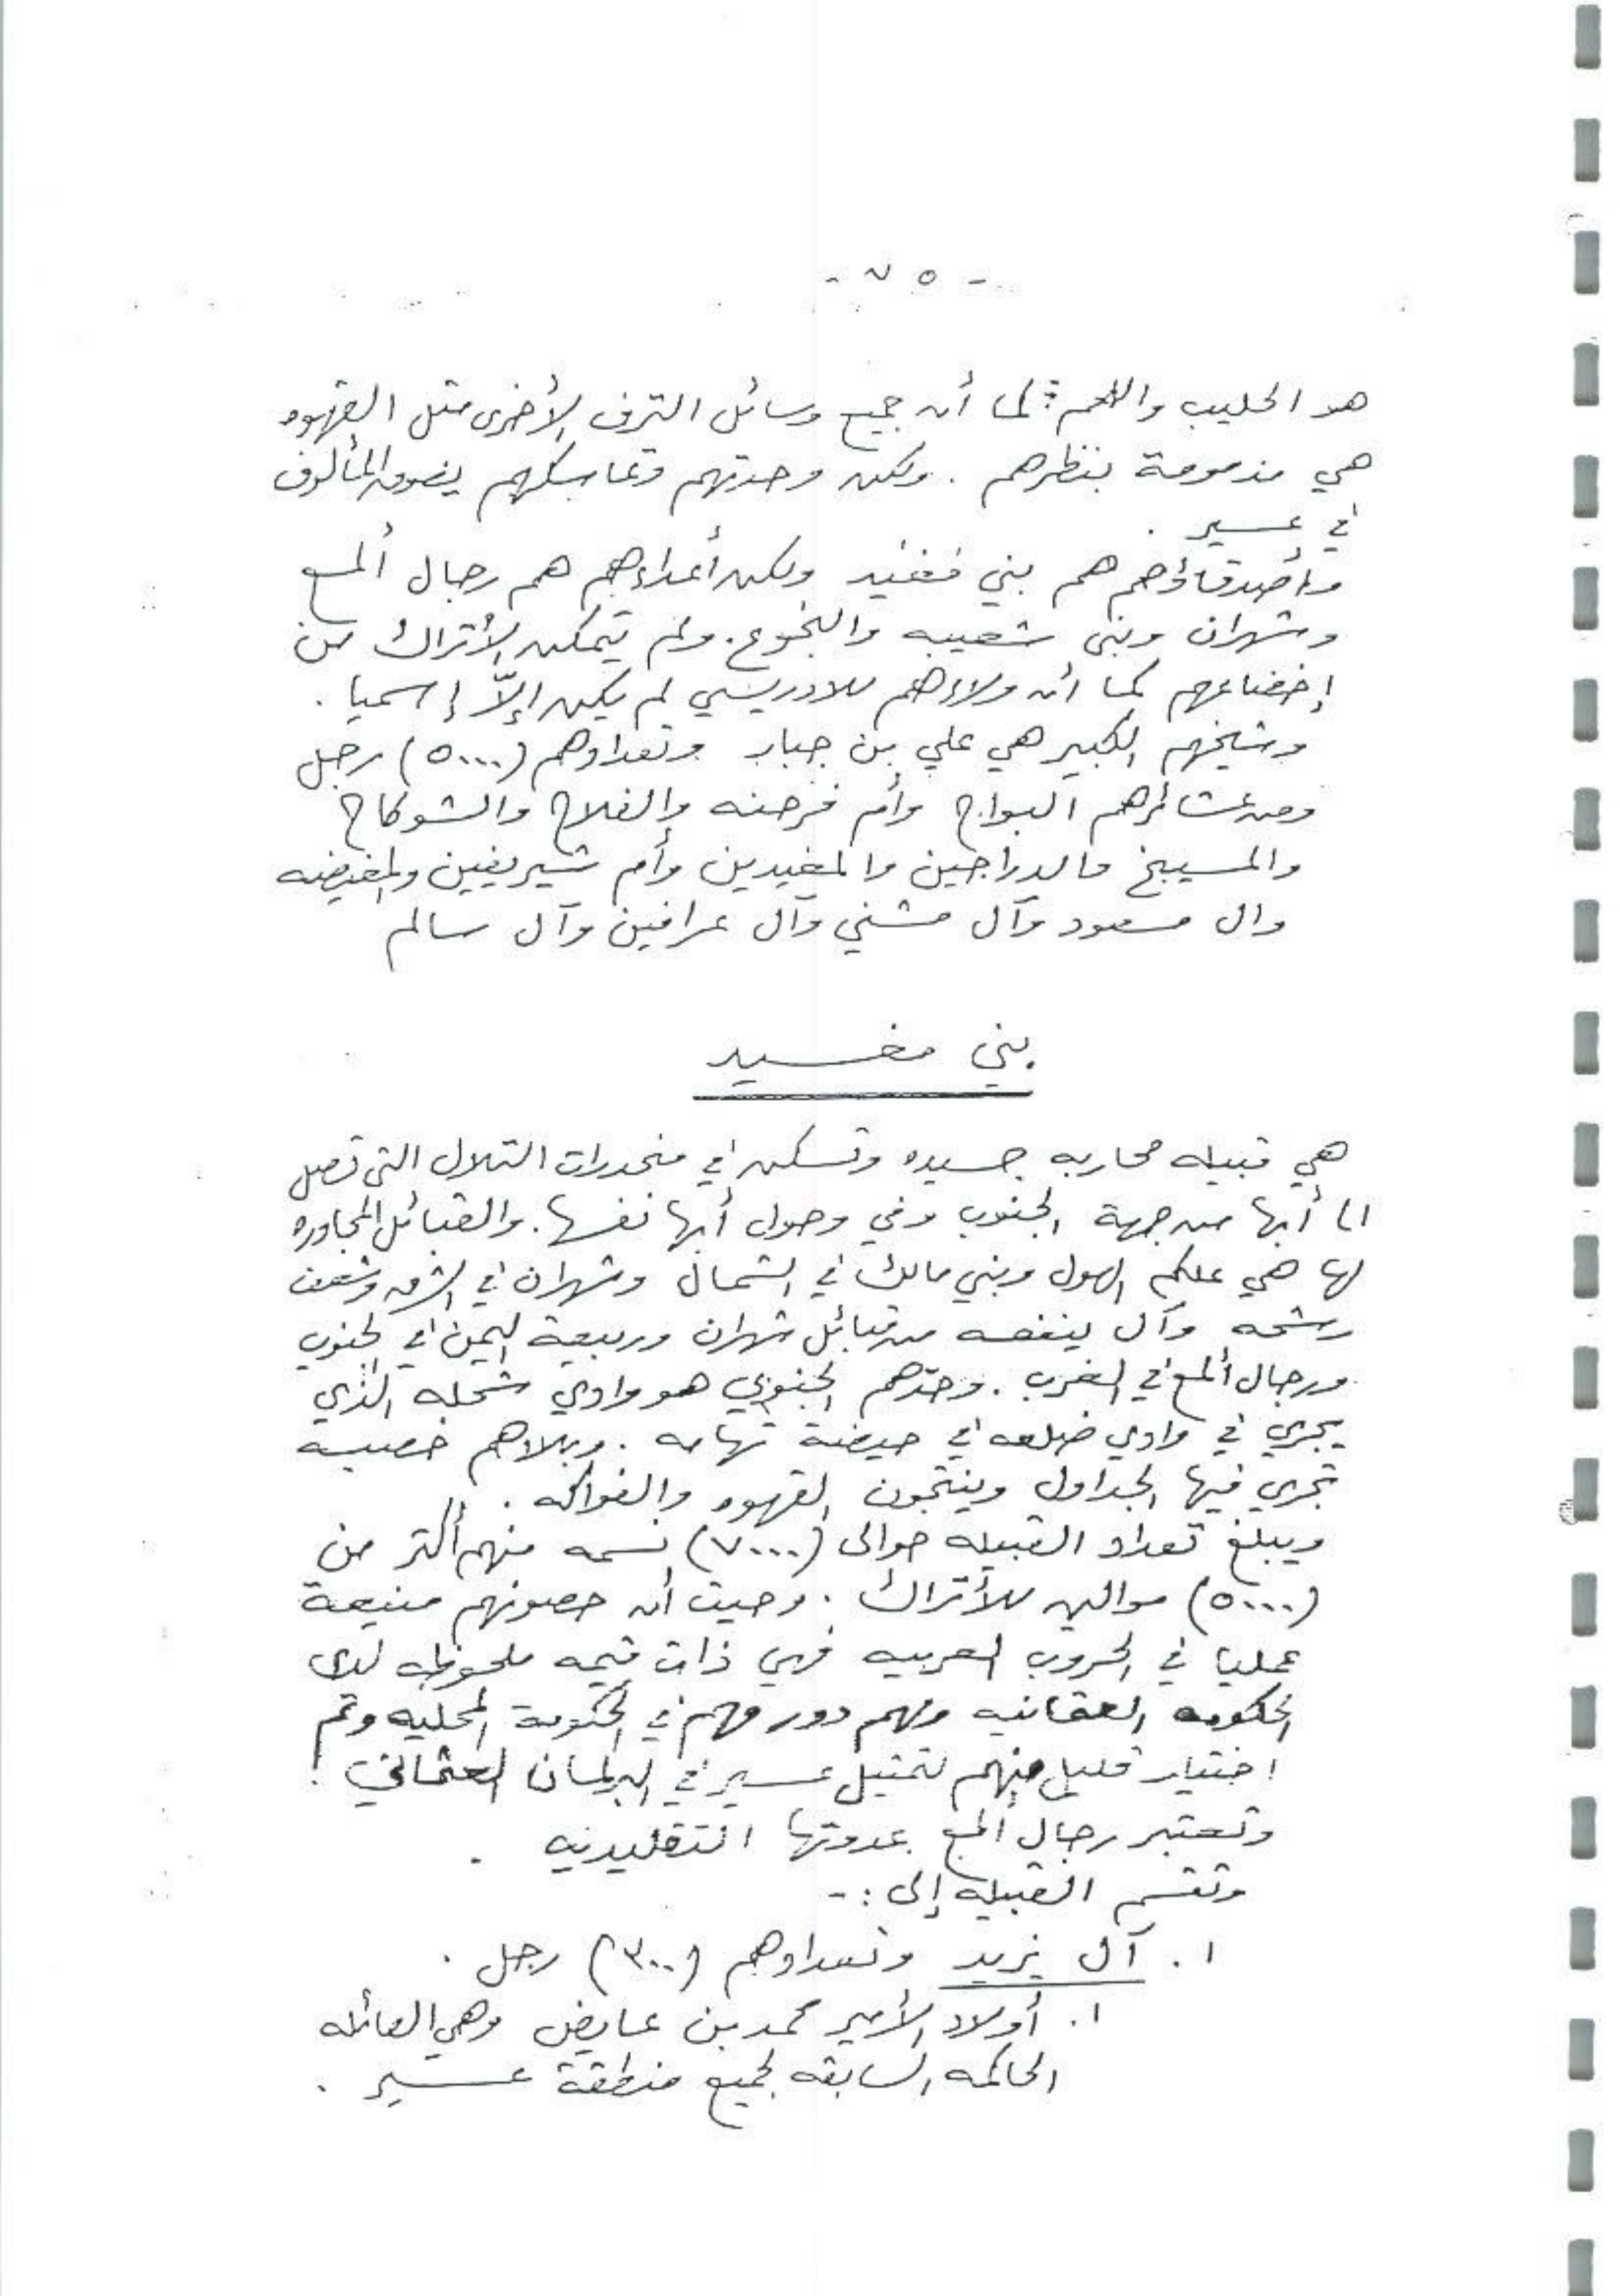 - ٧٥ -
هو الحليب واللحم كما أن جميع وسائل الترف الأخرى مثل القهوه
هي مذمومة بنظرهم . ولكن وحدتهم وتماسكهم يفوق المألوف
في عسير .
وأصدقاؤهم هم بني مغيد ولكن أعداءهم هم رجال ألمع
وشهران وبني شعيبه والنجوع . ولم يتمكن الأتراك من
إخضاعهم كما أن ولاءهم للادريسي لم يكن إلاّ إسميا .
وشيخهم الكبير هي علي بن جبار وتعدادهم (٥٠٠٠) رجل
ومن عشائرهم البواج وأم فرحنه والفلاح والشوكاح
والمسيبخ والدراجين والمفيدين وأم شيريفين والمغيضه
وال مسعود وآل مشني وآل عرافين وآل سالم
بني مغسيد
هي قبيله محاربه جسيده وتسكن في منحدرات التلال التي تصل
الى أبها من جهة الجنوب وفي وحول أبها نفسها . والقبائل المجاوره
لها هي علكم الهول وبني مالك في الشمال وشهران في الشرق وشعف
رشحه وآل ينفعه من قبائل شهران وربيعة اليمن في الجنوب
ورجال ألمع في الغرب . وحدّهم الجنوبي هو وادي شحله الذي
يجري في وادي ضلعه في حيضة تهامه . وبلادهم خصبه
تجري فيها الجداول وينتجون القهوه والفواكه .
ويبلغ تعداد القبيله حوالى (٧٠٠٠) نسمه منهم أكثر من
(٥٠٠٠) موالين للأتراك . وحيث أن حصونهم منيعة
عمليا في الحروب العربيه فهي ذات قيمه ملحوظه لدى
الحكومه العثمانيه ولهم دور مهم في الحكومة المحليه وتم
اختيار قليل منهم لتمثيل عسير في البرلمان العثماني .
وتعتبر رجال ألمع عدوتها التقليديه .
وتقسم القبيله إلى :-
١ . آل يزيد وتعدادهم (٣٠٠) رجل .
١. أولاد الأمير محمد بن عايض وهي العائله
الحاكمه السابقه لجميع منطقة عسير .